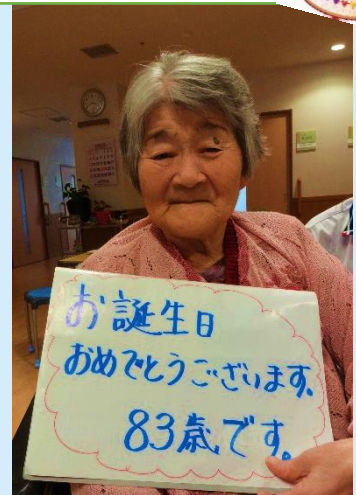 お誕生日
おめでとうございます。
83歳です。